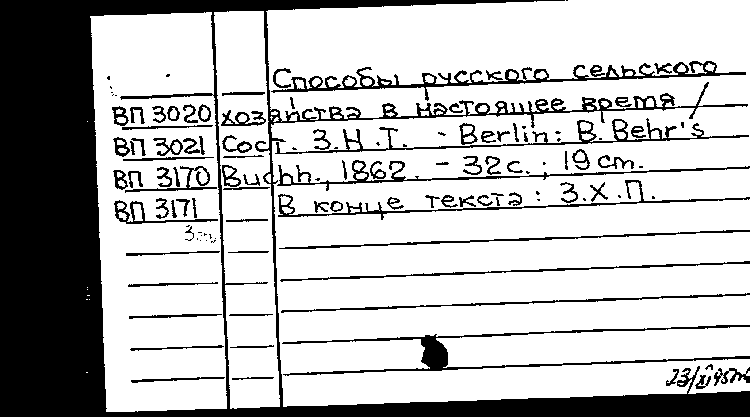 Способы русского сельского
ВП 3020 хозяйства в настоящее время /
ВП 3021 Сост. З.Н.Т. - Berlin: B. Behr's
ВП 3170 Buchh., 1862. - 32с.; 19 cm.
ВП 3171 В конце текста: З.Х.П.